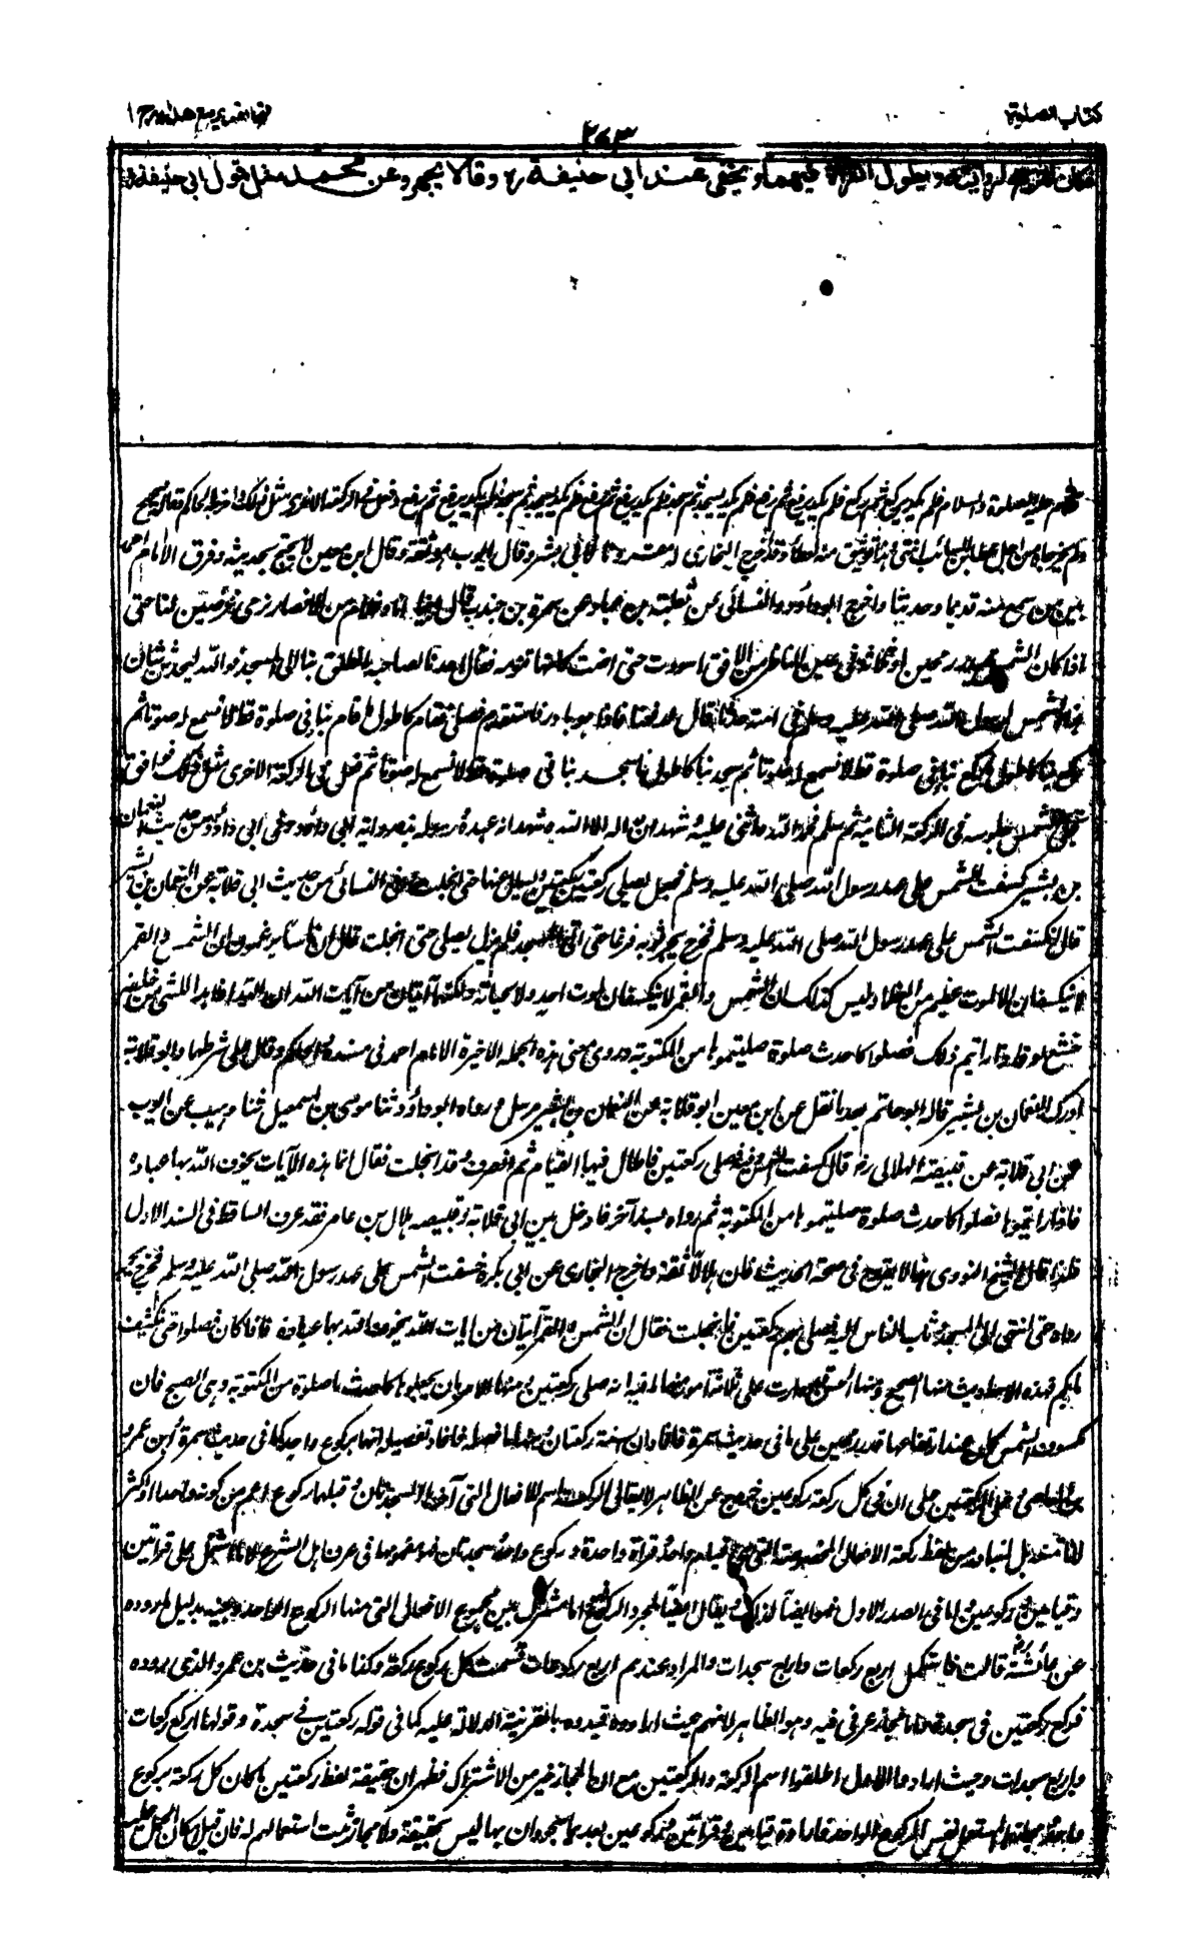 كتاب الصلوة
٢٧٣
فكان الترجيح لروايته ويطول القراءة فيهما ويخفى عند ابى حنيفة ره وقالا يجهر وعن محمد مثل قول ابى حنيفة
عليه الصلوة والسلام فلم يكد يركع ثم ركع فلم يكد يرفع ثم رفع فلم يكد يسجد ثم سجد فلم يكد يرفع ثم رفع فلم يكد يسجد ثم سجد فلم يكد يرفع ثم رفع وفعل فى الركعة الاخرى مثل ذلك واخرجه الحاكم وقال صحيح
ولم يخرجاه من اجل عطاء بن السائب وقد اخرج البخارى له مقرونا بابى بشر وقال ايوب هو ثقة وقال ابن معين لا يحتج بحديثه وفرق الامام احمد
بين من سمع منه قديما وحديثا واخرج ابو داؤد والنسائى عن ثعلبة بن عباد عن سمرة بن جندب قال بينا انا وغلام من الانصار نرمى غرضين لنا حتى
اذا كانت الشمس قيد رمحين او ثلاثة فى عين الناظر من الافق اسودت حتى اضت كانها تنومة فقال احدنا لصاحبه انطلق بنا الى المسجد فوالله ليحدثن شان
هذه الشمس لرسول الله صلى الله عليه وسلم فى امته حدثا قال فدفعنا فاذا هو بارز فاستقدم فصلى فقام كاطول ما قام بنا فى صلوة قط لا نسمع له صوتا ثم
ركع بنا كاطول ما ركع بنا فى صلوة قط لا نسمع له صوتا ثم سجد بنا كاطول ما سجد بنا فى صلوة قط لا نسمع له صوتا ثم فعل فى الركعة الاخرى مثل ذلك فوافق
تجلى الشمس جلوسه فى الركعة الثانية ثم سلم فحمد الله واثنى عليه وشهد ان لا اله الا الله وشهد انه عبده ورسوله هذه رواية ابى داؤد وفى ابى داؤد من حديث النعمان
بن بشير كسفت الشمس على عهد رسول الله صلى الله عليه وسلم فجعل يصلى ركعتين ركعتين ويسئل عنها حتى انجلت وفى النسائى من حديث ابى قلابة عن النعمان بن بشير
قال انكسفت الشمس على عهد رسول الله صلى الله عليه وسلم فخرج يجر ثوبه فزعا حتى اتى المسجد فلم يزل يصلى حتى انجلت قال ان ناسا يزعمون ان الشمس والقمر
لا ينكسفان الا لموت عظيم من العظماء وليس كذلك ان الشمس والقمر لا ينكسفان لموت احد ولا لحياته ولكنهما آيتان من آيات الله ان الله اذا بدا لشئ من خلقه
خشع له فاذا رايتم ذلك فصلوا كاحدث صلوة صليتموها من المكتوبة وروى معنى هذه الجملة الاخيرة الامام احمد فى مسنده والحاكم وقال على شرطهما وابو قلابة
ادرك النعمان بن بشير قاله ابو حاتم بعد ما نقل عن ابن معين ابو قلابة عن النعمان بن بشير مرسل ورواه ابو داؤد ثنا موسى بن اسمعيل ثنا وهيب عن ايوب
عن ابى قلابة عن قبيصة الهلالى رض قال كسفت الشمس وفيه فصلى ركعتين فاطال فيهما القيام ثم انصرف وقد انجلت فقال انما هذه الآيات يخوف الله بها عباده
فاذا رايتموها فصلوا كاحدث صلوة صليتموها من المكتوبة ثم رواه بسند آخر فادخل بين ابى قلابة وقبيصه هلال بن عامر فقد عرف الساقط فى السند الاول
فلذا قال الشيخ النووى هذا لا يقدح فى صحة الحديث فان هلالا ثقة واخرج البخارى عن ابى بكرة خسفت الشمس على عهد رسول الله صلى الله عليه وسلم فخرج يجر
رداءه حتى انتهى الى المسجد وثاب الناس اليه فصلى بهم ركعتين فانجلت فقال ان الشمس والقمر آيتان من آيات الله يخوف الله بهما عباده فاذا كان فصلوا حتى ينكشف
ما بكم فهذه الاحاديث منها الصحيح ومنها الحسن قد دارت على ثلاثة امور منها ما فيه انه صلى ركعتين ومنها الامر بان يجعلوها كاحدث ما صلوه من المكتوبة وهى الصبح فان
كسوف الشمس كان عند ارتفاعها قدر رمحين على ما فى حديث سمرة فافاد ان السنة ركعتان ومنها ما فصل فافاد تفصيله انها بركوع واحد كما فى حديث سمرة وابن عمرو
بن العاص وحمل الركعتين على ان فى كل ركعة ركوعين خروج عن الظاهر لا يقال الركعة اسم للافعال التى آخرها السجدتان وقبلها ركوع اعم من كونه واحدا او اكثر
لانا نمنعه بل المتبادر من لفظ ركعة الافعال المخصوصة التى هى قيام واحد وقراءة واحدة وركوع واحد وسجدتان فهو مفهومها فى عرف اهل الشرع لا ما اشتمل على قراءتين
وقيامين وركوعين واما فى الصدر الاول فهو ايضا لذلك ويقال ايضا لمجرد الركوع فهو اما مشترك بين مجموع الافعال التى منها الركوع الواحد وبينه بدليل ما رووه
عن عائشة رض قالت فاستكمل اربع ركعات واربع سجدات والمراد عندهم اربع ركوعات فسمت كل ركوع ركعة وكذا ما فى حديث بن عمرو الذى رووه
فركع ركعتين فى سجدة واما مجاز عرفى فيه وهو الظاهر لانهم حيث ارادوه قيدوه بالقرينة الدالة عليه كما فى قوله ركعتين فى سجدة وقولها اربع ركعات
واربع سجدات وحيث ارادوا الاول اطلقوا اسم الركعة والركعتين مع ان المجاز خير من الاشتراك فظهر ان حقيقة لفظ ركعتين ما كان كل ركعة بركوع
واحد ومجازها المستعمل نفس الركوع الواحد فارادة قيامين وقراءتين وركوعين بعدهما سجودان بها ليس بحقيقة ولا مجاز ثبت استعمالهم له فان قيل امكان الحمل عليه